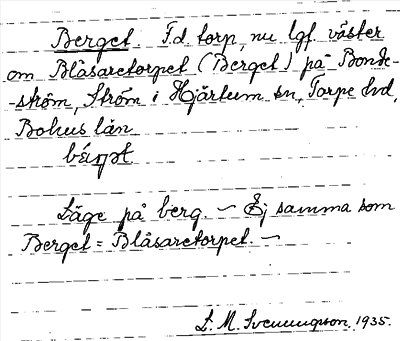 Berget. F.d. torp, nu lgf. väster
om Blåsaretorpet (Berget) på Bonde-
-ström, Ström i Hjärtum sn, Torpe hd,
Bohus län
Läge på berg. – Ej samma som
Berget = Blåsaretorpet. –
L. M. Svenungsson, 1935.